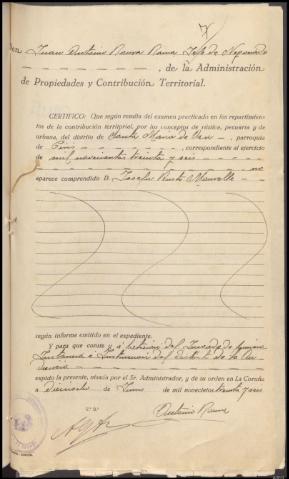 Don Juan Antonio Rama Rama Jefe de Negociado
, de la Administración
de Propiedades y Contribución Territorial.
CERTIFICO: Que según resulta del examen practicado en los repartimien-
tos de la contribución territorial, por los conceptos de rústica, pecuaria y de
urbana, del distrito de Santa de , parroquia
de , correspondiente al ejercicio
de mil novecientos treinta y seis
no
aparece comprendido D.
según informe emitido en el expediente.
Y para que conste y a petición del Juzgado de primera
Instancia e Instrucción del distrito de la Au-
diencia
expido la presente, visada por el Sr. Administrador, y de su orden en La Coruña
a de de mil novecientos treinta y seis
V.º B.º
Antonio Rama